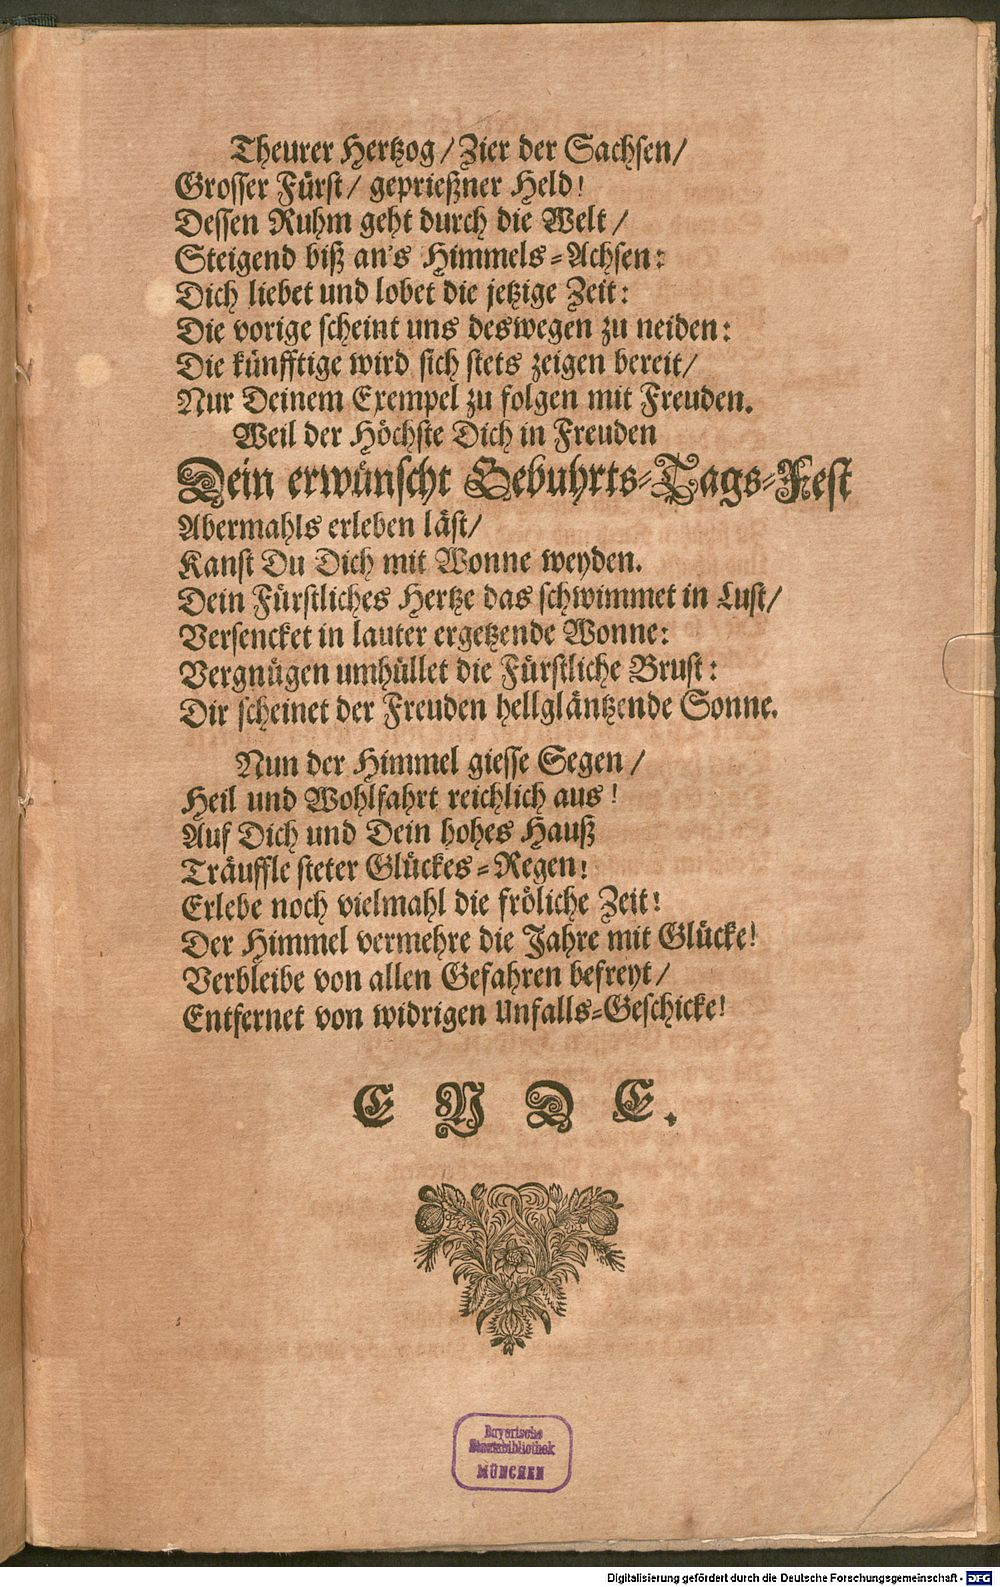 Theurer Hertzog / Zier der Sachsen /
Grosser Fürst / geprießner Held!
Dessen Ruhm geht durch die Welt /
Steigend biß an's Himmels-Achsen:
Dich liebet und lobet die jetzige Zeit:
Die vorige scheint uns deswegen zu neiden:
Die künfftige wird sich stets zeigen bereit /
Nur Deinem Exempel zu folgen mit Freuden.
Weil der Höchste Dich in Freuden
Dein erwünscht Gebuhrts-Tags-Fest
Abermahls erleben läst /
Kanst Du Dich mit Wonne weyden.
Dein Fürstliches Hertze das schwimmet in Lust /
Versencket in lauter ergetzende Wonne:
Vergnügen umhüllet die Fürstliche Brust:
Dir scheinet der Freuden hellgläntzende Sonne.
Nun der Himmel giesse Segen /
Heil und Wohlfahrt reichlich aus!
Auf Dich und Dein hohes Hauß
Träuffle steter Glückes-Regen!
Erlebe noch vielmahl die fröliche Zeit!
Der Himmel vermehre die Jahre mit Glücke!
Verbleibe von allen Gefahren befreyt /
Entfernet von widrigen Unfalls-Geschicke!
ENDE.
Bayerische
Staatsbibliothek
MÜNCHEN
Digitalisierung gefördert durch die Deutsche Forschungsgemeinschaft - DFG